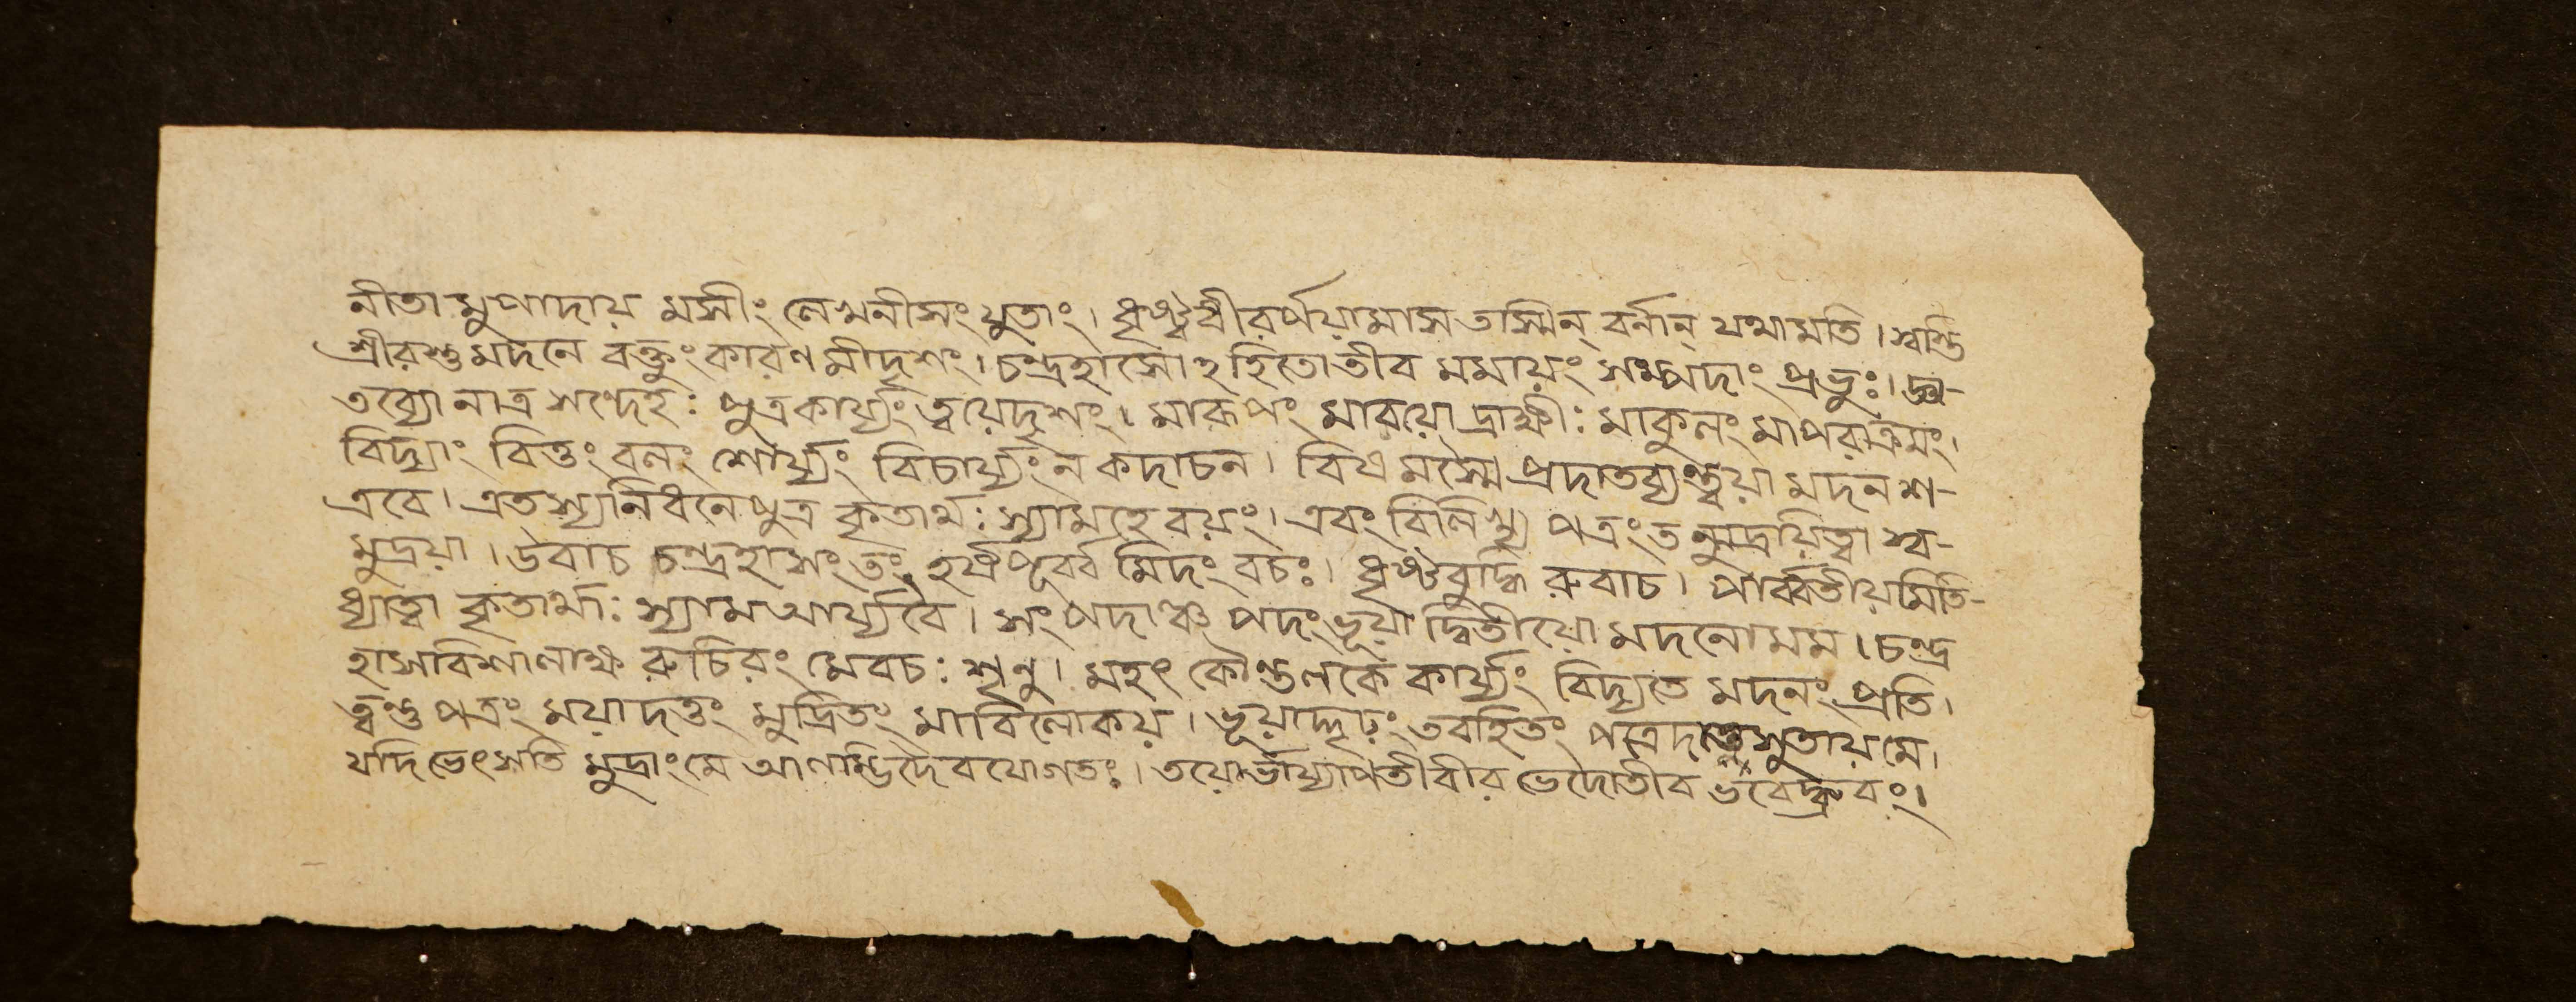 নীতামুপাদায় মসীং লেখনীসংযুতাং। ধৃষ্টধীর্বর্ণয়ামাস তস্মিন্ বর্নান্ যথামতি। স্বস্তি
শ্রীরস্তু মদনে বক্তুং কারণমীদৃশং। চন্দ্রহাসোঽহিতোতীব মমায়ং সম্পদাং প্রভুঃ। জ্ঞা-
তব্যো নাত্র সন্দেহঃ পুত্রকার্য্যং ত্বয়েদৃশং। মারূপং মাবয়ো দ্রাক্ষীঃ মাকুলং মাপরাক্রমং।
বিদ্যাং বিত্তং বলং শৌর্য্যং বিচার্য্যং ন কদাচন। বিষমস্মৈ প্রদাতব্যন্ত্বয়া মদন শ-
ত্রবে। এতস্য নিধনে পুত্র কৃতার্থাঃ স্যামহে বয়ং। এবং বিলিখ্য পত্রং তন্মুদ্রয়িত্বা স্ব-
মুদ্রয়া। উবাচ চন্দ্রহাসং তং হর্ষপূর্ব্বমিদং বচঃ। ধৃষ্টবুদ্ধি রুবাচ। পার্ব্বতীয়মিতি-
ধ্যাত্বা কৃতার্থাঃ স্যাম আর্য্যবৈ। সংপদাঞ্চ পদং ভূয়া দ্বিতীয়ো মদনো মম। চন্দ্র
হাসবিশালাক্ষ রুচিরং মেবচঃ শৃনু। মহৎ কৌন্তলকে কার্য্যং বিদ্যতে মদনং প্রতি।
ত্বন্তু পত্রং ময়াদত্তং মুদ্রিতং মাবিলোকয়। ভূয়াদ্দৃঢ়ং তবহিতং পত্রে দত্তে সুতায় মে।
যদি ভেৎসতি মুদ্রাং মে আলস্তিদৈবযোগতঃ। তয়োর্ভার্য্যাপতীবীর ভেদোতীব ভবেদ্ধ্রুবং।